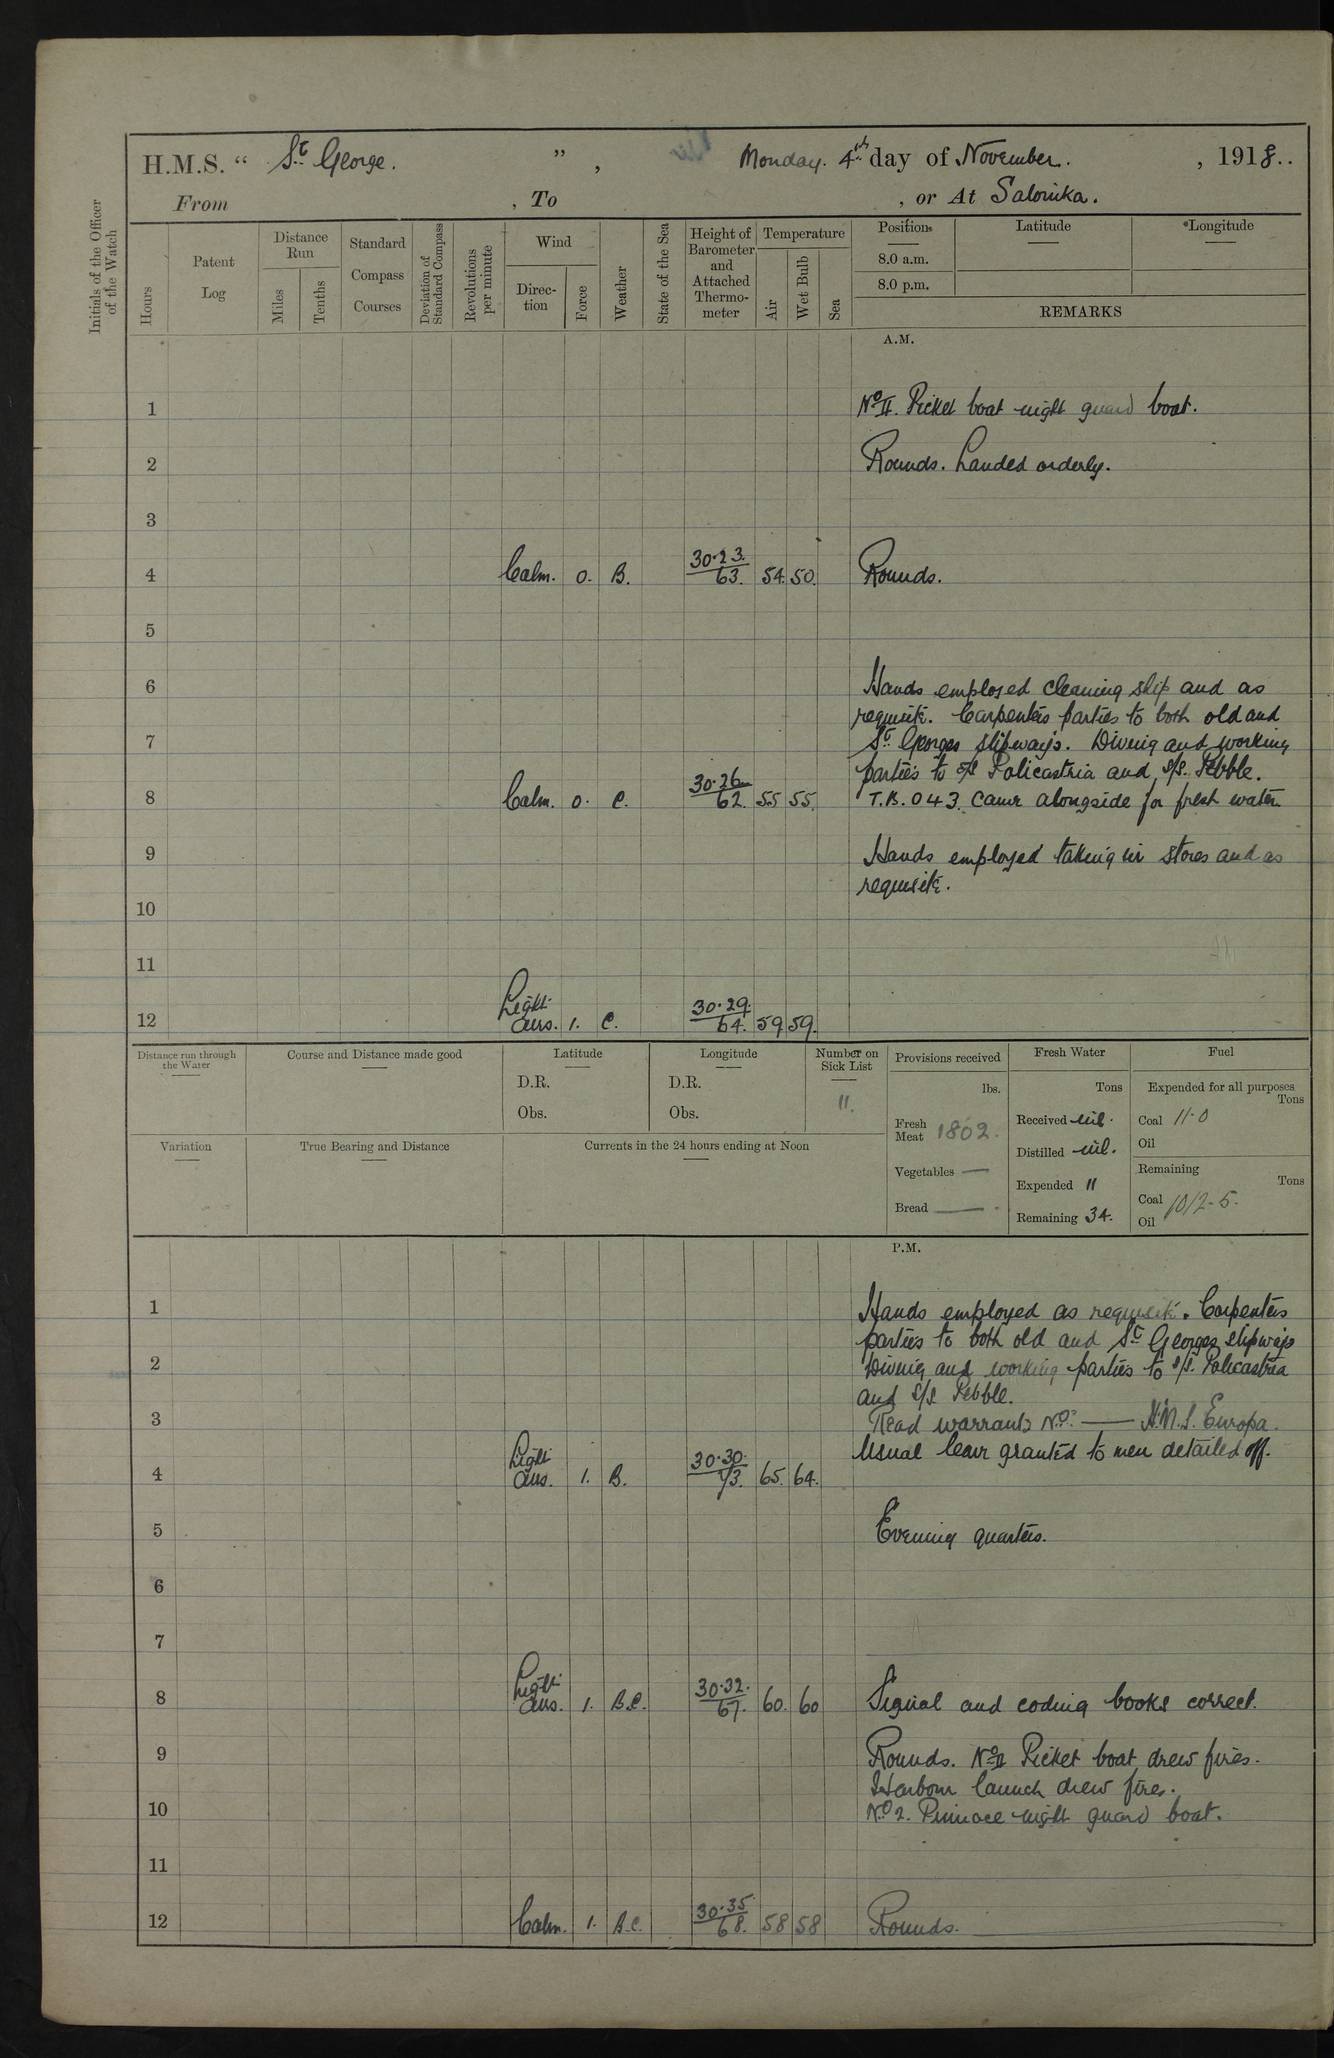 H.M.S. “ St George. ” , Monday. 4th day of November. , 1918..
From , To , or At Salonika.
Initials of the Officer of the Watch
Hours
Patent Log
Distance Run
Miles
Tenths
Standard Compass Courses
Deviation of Standard Compass
Revolutions per minute
Wind
Direction
Force
Weather
State of the Sea
Height of Barometer and Attached Thermometer
Temperature
Air
Wet Bulb
Sea
Position
8.0 a.m.
8.0 p.m.
Latitude
*Longitude
REMARKS
A.M.
1 No II. Picket boat night guard boat.
2 Rounds. Landed orderly.
3
4 Calm. 0. B. 30.23. 63. 54. 50. Rounds.
5
6 Hands employed cleaning ship and as
requisite. Carpenters parties to both old and
7 St Georges slipways. Diving and working
parties to s/s Policastria and s/s. Pebble.
8 Calm. 0. C. 30.26 62. 55 55. T.B. 043. came alongside for fresh water
9 Hands employed taking in stores and as
requisite.
10
11
12 Light airs. 1. C. 30.29. 64. 59 59.
Distance run through the Water
Course and Distance made good
Latitude
D.R.
Obs.
Longitude
D.R.
Obs.
Number on Sick List
11.
Provisions received
lbs.
Fresh Meat 1802.
Vegetables —
Bread —
Fresh Water
Tons
Received nil.
Distilled nil.
Expended 11
Remaining 34.
Fuel
Expended for all purposes
Tons
Coal 11.0
Oil
Remaining
Tons
Coal 1012.5.
Oil
Variation
True Bearing and Distance
Currents in the 24 hours ending at Noon
P.M.
1 Hands employed as requisite. Carpenters
parties to both old and St Georges slipways
2 Diving and working parties to s/s. Policastria
and s/s Pebble.
3 Read warrants No: — H.M.S. Europa.
Usual leave granted to men detailed off.
4 Light airs. 1. B. 30.30. 73. 65. 64.
5 Evening quarters.
6
7
8 Light airs. 1. B.C. 30.32. 67. 60. 60 Signal and coding books correct.
9 Rounds. No II Picket boat drew fires.
Harbour launch drew fires.
10 No 2. Pinnace night guard boat.
11
12 Calm. 1. B.C. 30.35 68. 58 58 Rounds.